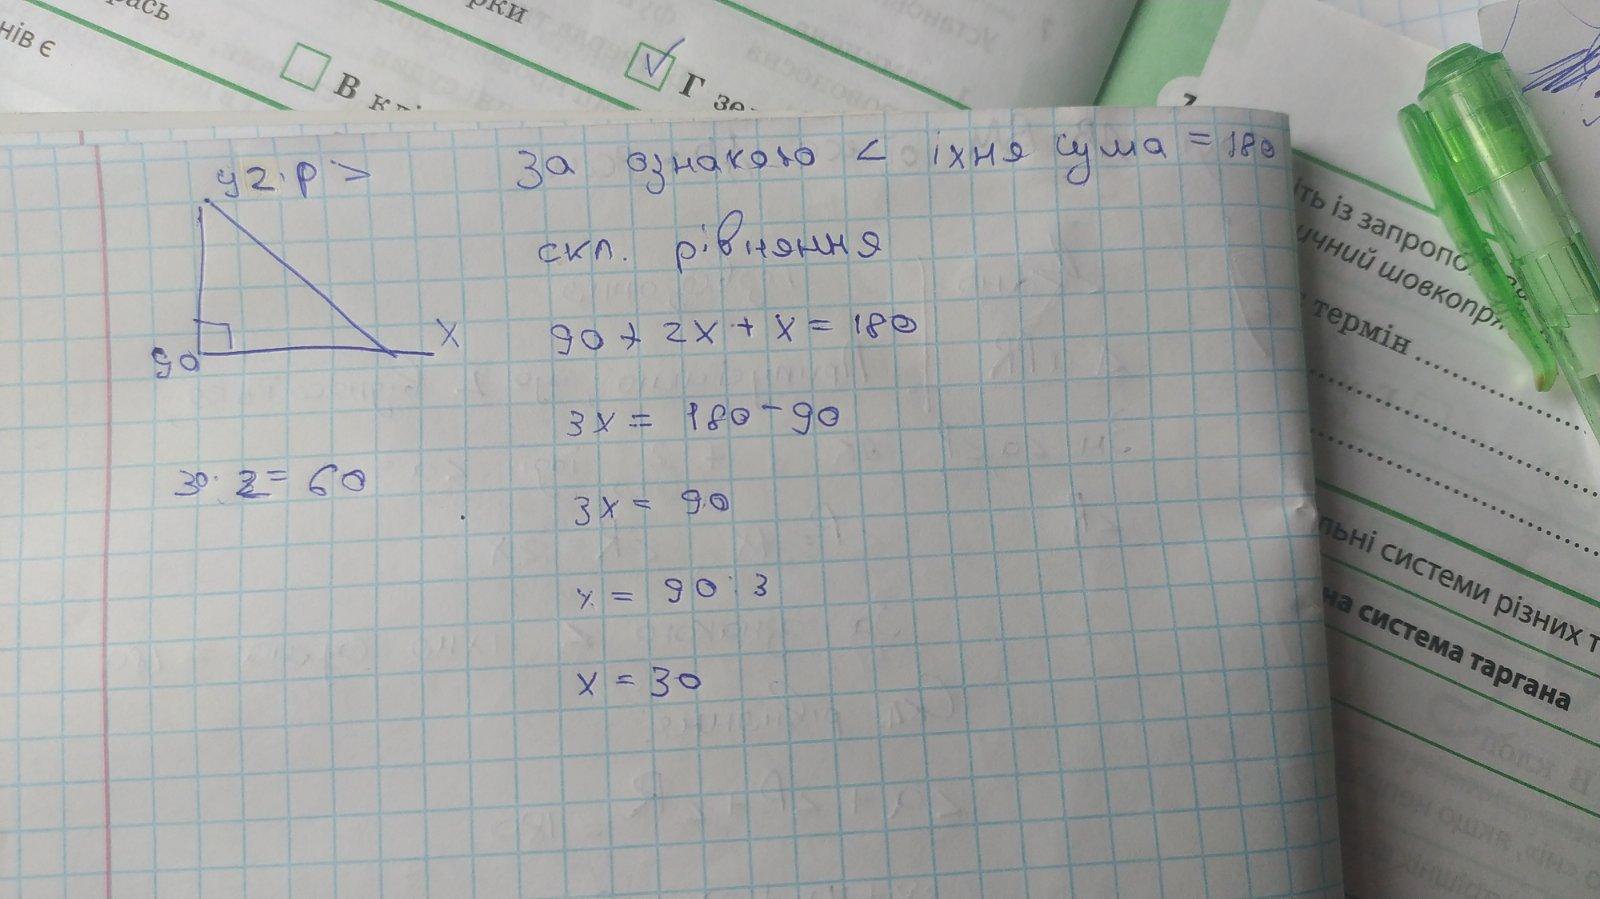 рки
нів є
В
Г
у 2. р >
За ознакою < їхня сума = 180
скл. рівняння
90 + 2x + x = 180
90
X
3x = 180 - 90
30 · 2 = 60
3x = 90
x = 90 : 3
x = 30
ить із запропо
ичний шовкопря
термін
льні системи різних т
на система таргана